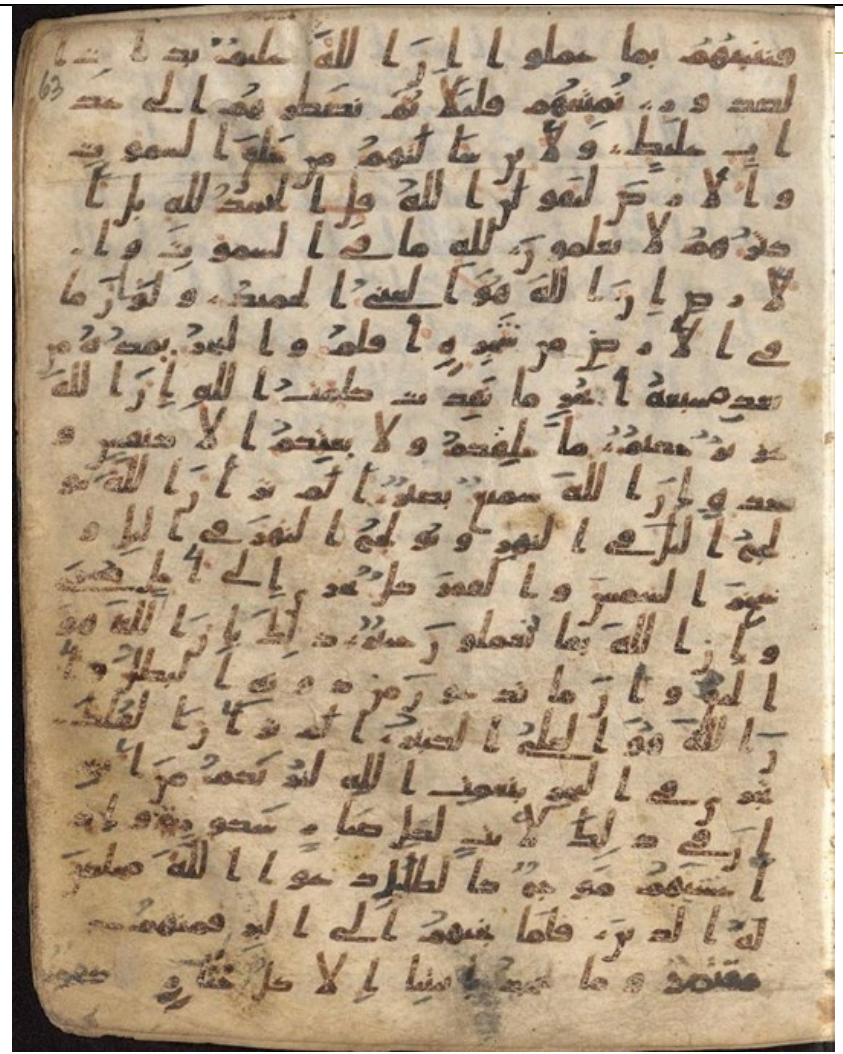 فننبئهم بما عملوا إن الله عليم بذات ا
63
لصدور نمتعهم قليلا ثم نضطرهم إلى عذ
اب غليظ ولئن سألتهم من خلق السموت
والأرض ليقولن الله قل الحمد لله بل أ
كثرهم لا يعلمون لله ما في السموت وا
لأرض إن الله هو الغني الحميد ولو أنما
في الأرض من شجرة أقلم والبحر يمده من
بعده سبعة أبحر ما نفدت كلمت الله إن الله
عزيز حكيم ما خلقكم ولا بعثكم إلا كنفس و
حدة إن الله سميع بصير ألم تر أن الله يو
لج اليل في النهر ويولج النهر في اليل و
سخر الشمس والقمر كل يجري إلى أجل مسمى
وأن الله بما تعملون خبير ذلك بأن الله هو
الحق وأن ما يدعون من دونه البطل وأ
ن الله هو العلي الكبير ألم تر أن الفلك
تجري في البحر بنعمت الله ليريكم من أيته
إن في ذلك لأيت لكل صبار شكور وإذا
غشيهم موج كالظلل دعوا الله مخلصين
له الدين فلما نجيهم إلى البر فمنهم
مقتصد وما يجحد بأيتنا إلا كل ختار كفور